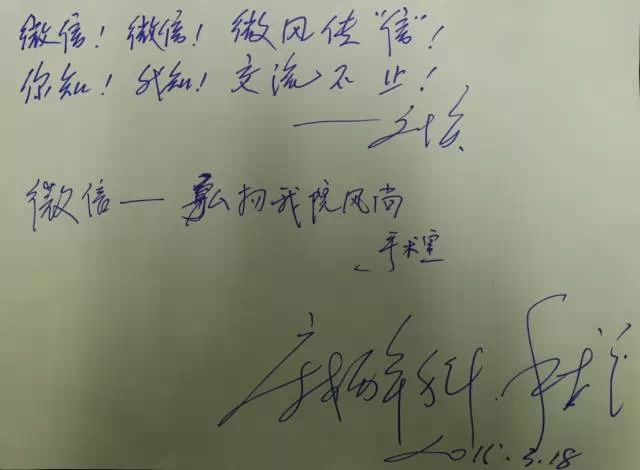 微信！微信！微风传“信”！
你知！我知！交流不止！
微信——弘扬我院风尚
手术室
麻醉科.手术室